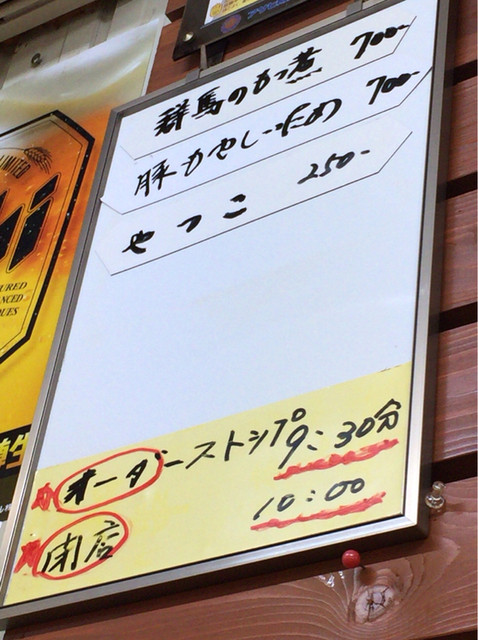 群馬のもつ煮 700-
豚カやしいため 700-
やっこ 250-
オーダーストップ 9:30分
閉店 10:00